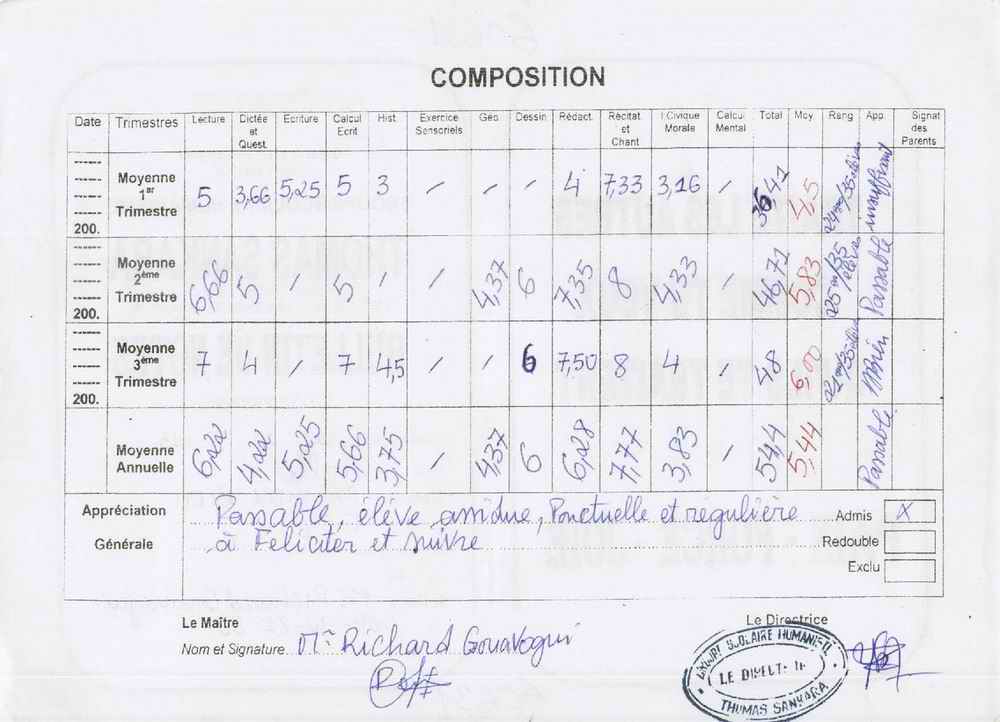 COMPOSITION
Date Trimestres Lecture Dictée et Quest. Ecriture Calcul Ecrit Hist. Exercice Sensoriels Géo. Dessin Rédact. Récitat et Chant I Civique Morale Calcul Mental Total Moy. Rang App. Signat des Parents
200. Moyenne 1er Trimestre 5 3,66 5,25 5 3 / / / 4 7,33 3,16 / 36,41 4,5 insuffisant
200. Moyenne 2ème Trimestre 6,66 5 / 5 / / 4,37 6 7,35 8 4,33 / 46,71 5,83 25è/35 élèves Passable
200. Moyenne 3ème Trimestre 7 4 / 7 4,5 / / 6 7,50 8 4 / 48 6,00
Moyenne Annuelle 6,22 4,22 5,25 5,66 3,75 / 4,37 6 6,28 7,77 3,83 / 54,4 5,44 Passable
Appréciation Générale
Passable, élève assidue, Ponctuelle et régulière
à Féliciter et suivre
Admis X
Redouble
Exclu
Le Maître
Nom et Signature Mr Richard Gouavogui
Le Directrice
SCOLAIRE HUMANITÉ
THOMAS SANKARA